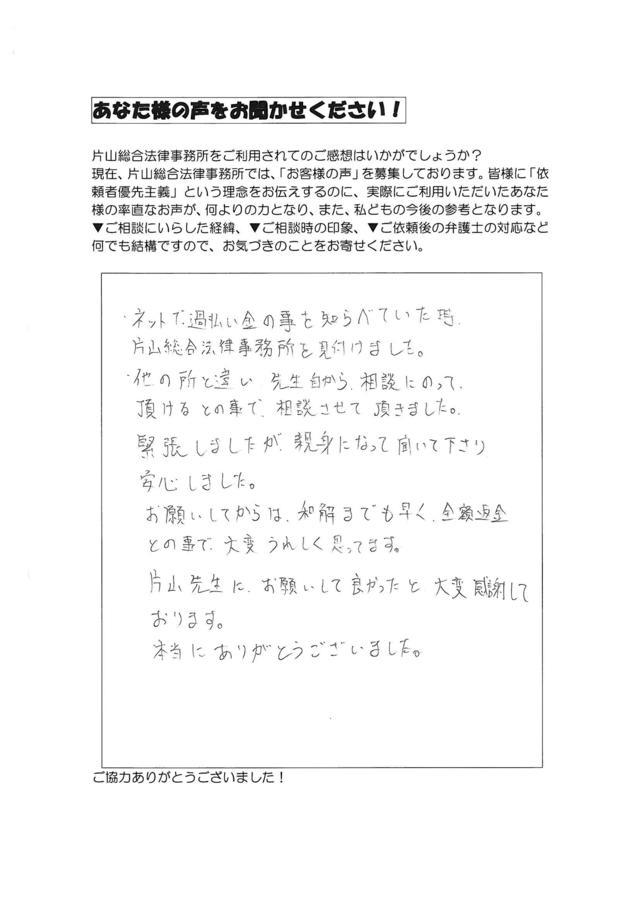 あなた様の声をお聞かせください！
片山総合法律事務所をご利用されてのご感想はいかがでしょうか？
現在、片山総合法律事務所では、「お客様の声」を募集しております。皆様に「依
頼者優先主義」という理念をお伝えするのに、実際にご利用いただいたあなた
様の率直なお声が、何よりの力となり、また、私どもの今後の参考となります。
▼ご相談にいらした経緯、▼ご相談時の印象、▼ご依頼後の弁護士の対応など
何でも結構ですので、お気づきのことをお寄せください。
・ネットで、過払い金の事を知らべていた時、
片山総合法律事務所を見付けました。
・他の所と違い 先生自から、相談にのって、
頂けるとの事で、相談させて頂きました。
緊張しましたが、親身になって聞いて下さり
安心しました。
お願いしてからは、和解までも早く、全額返金
との事で、大変うれしく思ってます。
片山先生に、お願いして良かったと大変感謝して
おります。
本当にありがとうございました。
ご協力ありがとうございました！